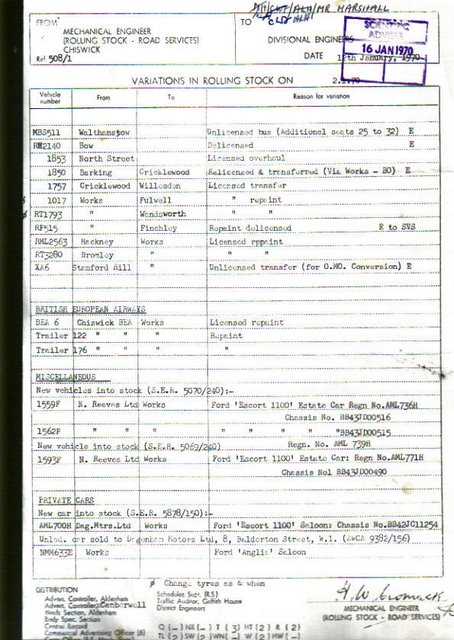 MR MARSHALL
FROM
MECHANICAL ENGINEER
(ROLLING STOCK - ROAD SERVICES)
CHISWICK
Ref 508/1
TO
DIVISIONAL ENGINEERS
DATE 12th January, 1970
SCIENTIFIC
ADVISER
16 JAN 1970
VARIATIONS IN ROLLING STOCK ON
Vehicle number From To Reason for variation
MBS511 Walthamstow Unlicensed bus (Additional seats 25 to 32) E
RM2140 Bow Delicensed E
1853 North Street Licensed overhaul
1850 Barking Cricklewood Relicensed & transferred (Via Works - BO) E
1757 Cricklewood Willesden Licensed transfer
1017 Works Fulwell " repaint
RT1793 " Wandsworth " "
RF515 " Finchley Repaint delicensed E to SVS
RML2563 Hackney Works Licensed repaint
RT3280 Bromley " " "
XA6 Stamford Hill " Unlicensed transfer (for O.MO. Conversion) E
BRITISH EUROPEAN AIRWAYS
BEA 6 Chiswick BEA Works Licensed repaint
Trailer 122 " " Repaint
Trailer 176 " " "
MISCELLANEOUS
New vehicles into stock (S.E.R. 5070/240):-
1559F N. Reeves Ltd Works Ford 'Escort 1100' Estate Car Regn No.AML736H
Chassis No. BB43JD00516
1562F " " " " " " "BB43JD00515
New vehicle into stock (S.E.R. 5069/240) Regn. No. AML 739H
1593F N. Reeves Ltd Works Ford 'Escort 1100' Estate Car: Regn No.AML771H
Chassis No: BB43JD00490
PRIVATE CARS
New car into stock (S.E.R. 5878/150):-
AML700H Dag.Mtrs.Ltd Works Ford 'Escort 1100' Saloon: Chassis No.BB43JC11254
car sold to Dagenham Motors Ltd, 8, Balderton Street, W.1. (AWCA 9382/156)
NMM633E Works Ford 'Anglia' Saloon
Ø Change tyres as & when
DISTRIBUTION
Advert. Controller, Aldenham
Advert. Controller, Camberwell
Hinds Section, Aldenham
Body Spec. Section
Central Record
Commercial Advertising Officer (6)
Schedules Supt. (R.S.)
Traffic Auditor, Griffith House
District Engineers
MECHANICAL ENGINEER
(ROLLING STOCK - ROAD SERVICES)